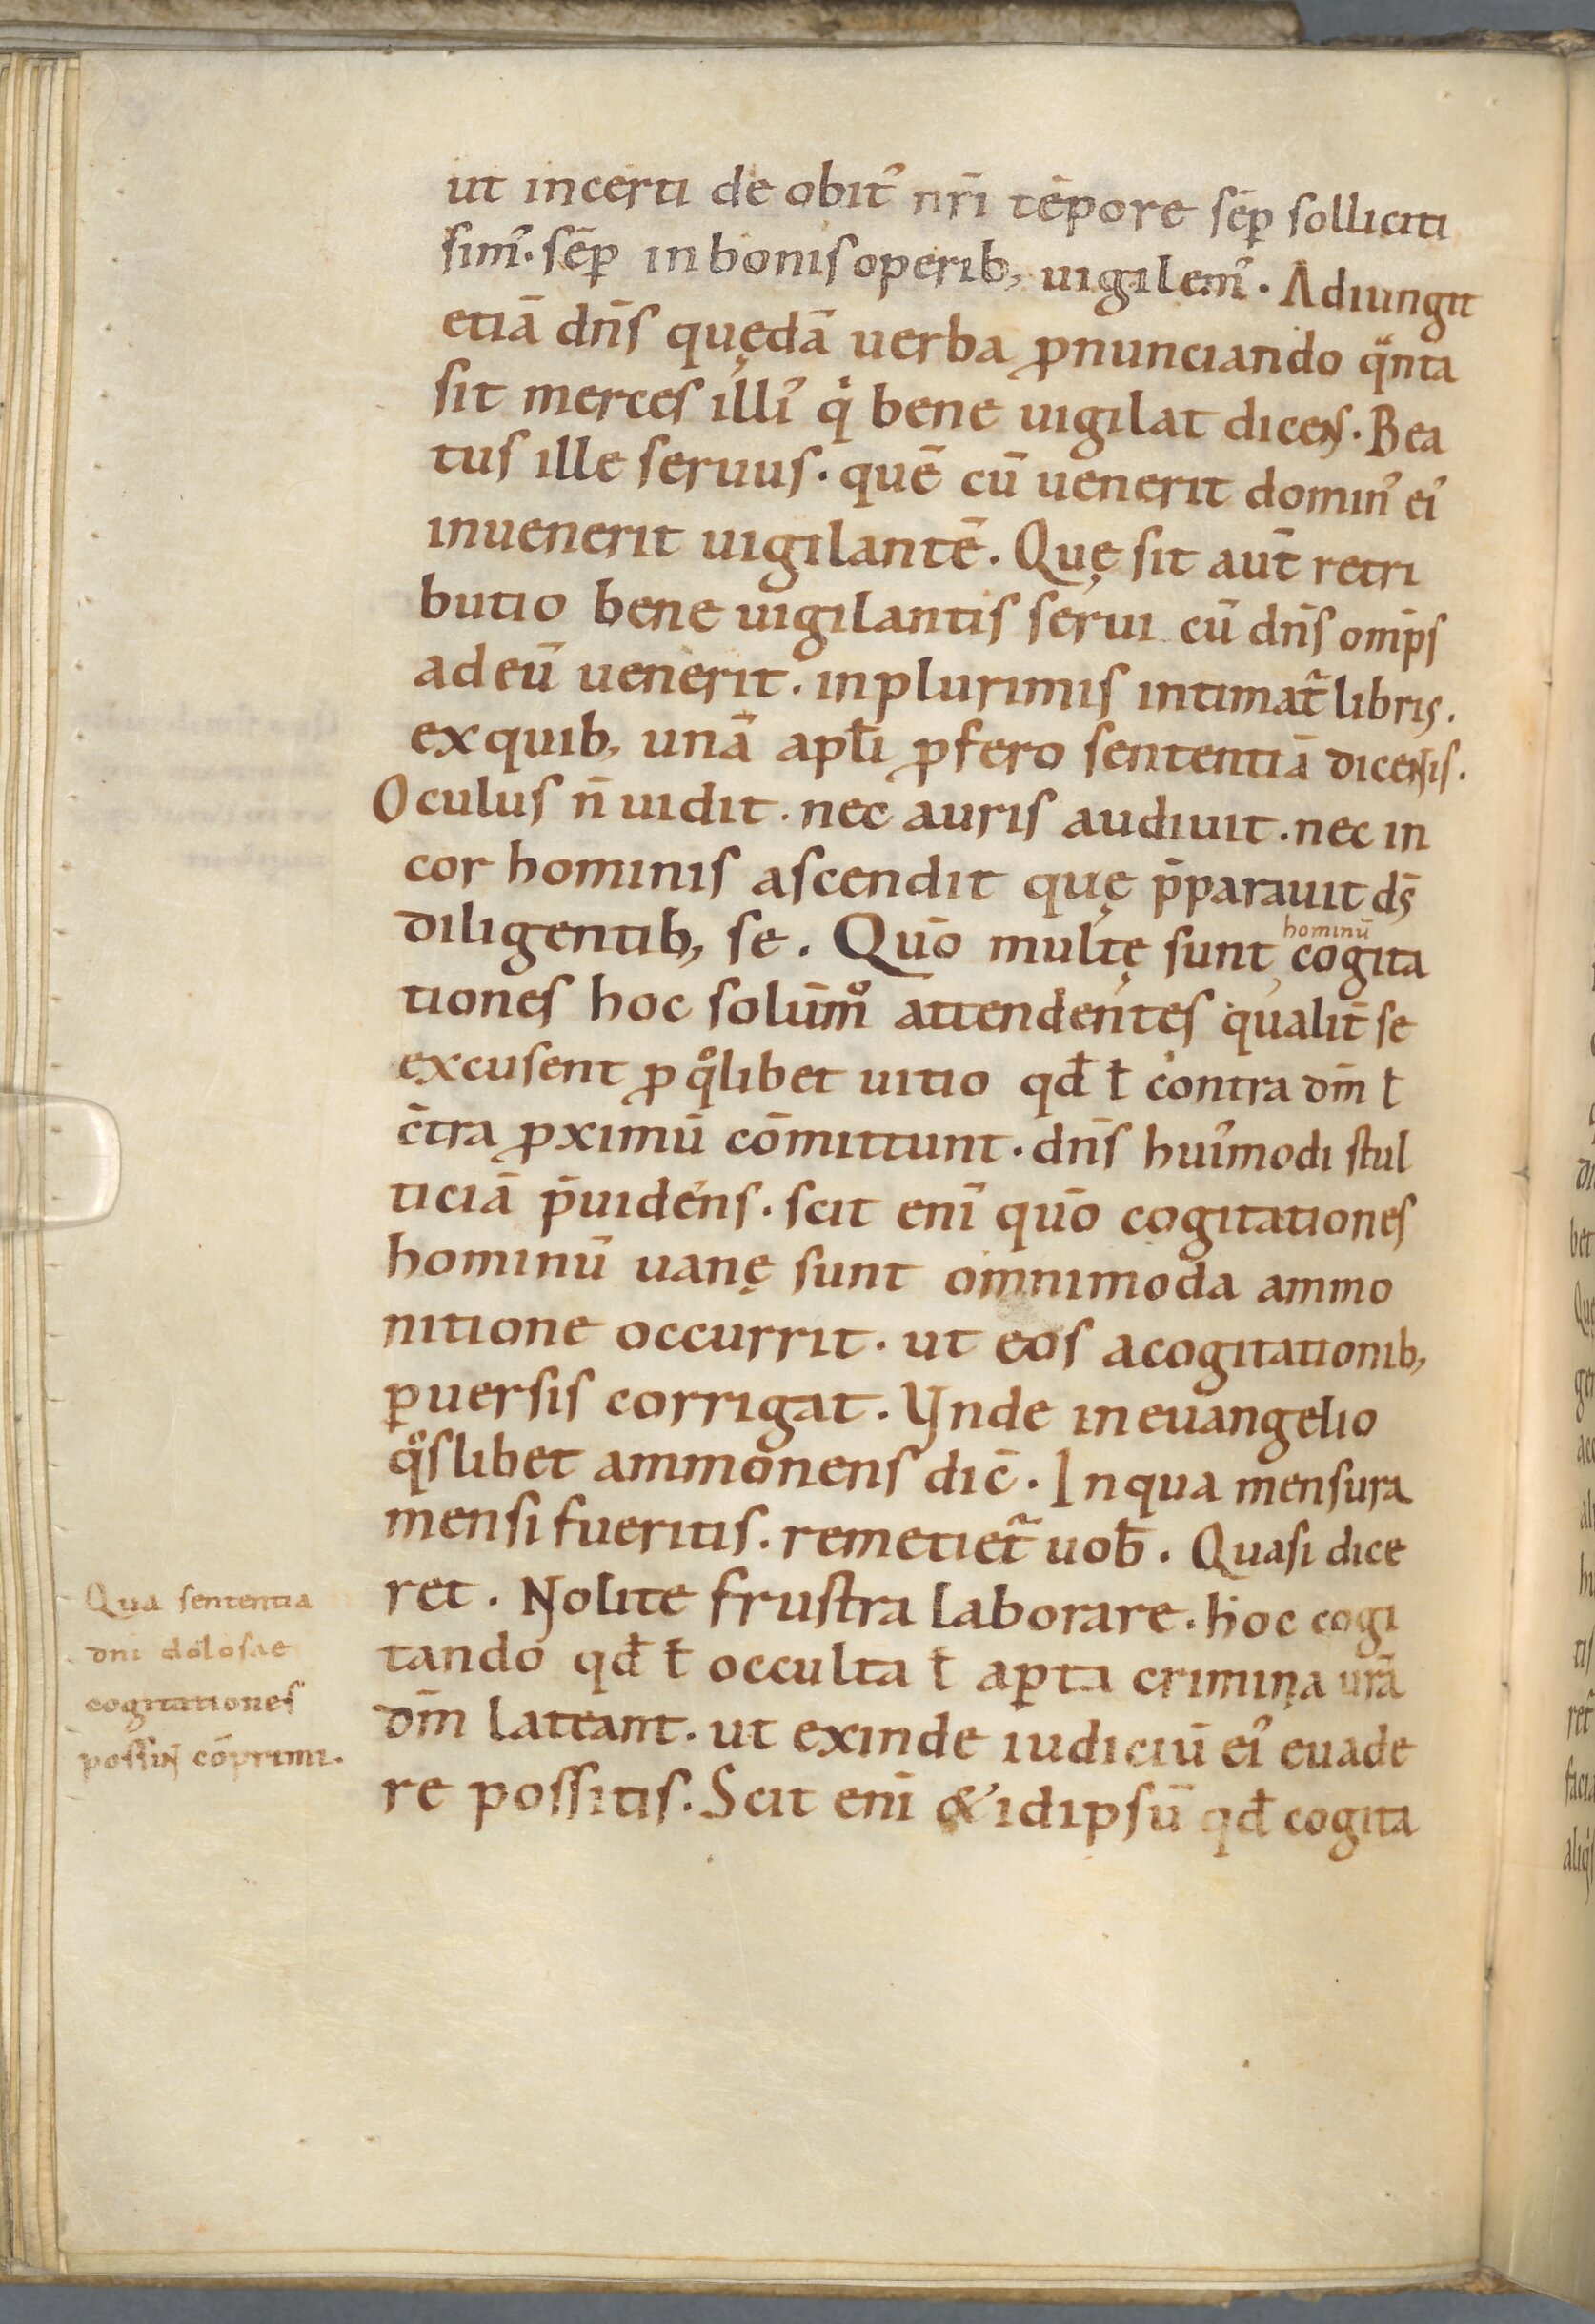 ut incerti de obit᾽ nr̄i tēpore sēꝑ solliciti
sim᾽. sēꝑ in bonis operib, uigilem᾽. Adiungit
etiā dn̄s quędā uerba ꝓnunciando qͣnta
sit merces illi᾽ qͥ bene uigilat dicens. Bea
tus ille seruus. quē cū uenerit domin᾽ ei᾽
inuenerit uigilantē. Quę sit aut̄ retri
butio bene uigilantis serui cū dn̄s omīps
ad eū uenerit. in plurimis intimat᷑ libris.
ex quib, unā apłi ꝓfero sententiā dicentis.
Oculus n̄ uidit. nec auris audiuit. nec in
cor hominis ascendit quę p̄parauit ds̄
diligentib, se. Quō multę sunt hominū cogita
tiones hoc solūmͦ attendentes qualit̄ se
excusent ꝓ qͦlibet uitio qđ ł contra dm̄ ł
c̄tra ꝓximū cōmittunt. dn̄s hui᾽modi stul
ticiā p̄uidens. scit enī quō cogitationes
hominū uanę sunt omnimoda ammo
nitione occurrit. ut eos a cogitationib,
ꝑuersis corrigat. Vnde in euangelio
qͦslibet ammonens dic̄. In qua mensura
mensi fueritis. remetiet᷑ uob̄. Quasi dice
ret. Nolite frustra laborare. hoc cogi
tando qđ ł occulta ł aꝑta crimina ur̄a
dm̄ lateant. ut exinde iudiciū ei᾽ euade
re possitis. Scit enī & idipsū qđ cogita
Qua sententia
dni dolosae
cogitationes
possint cōprimi.